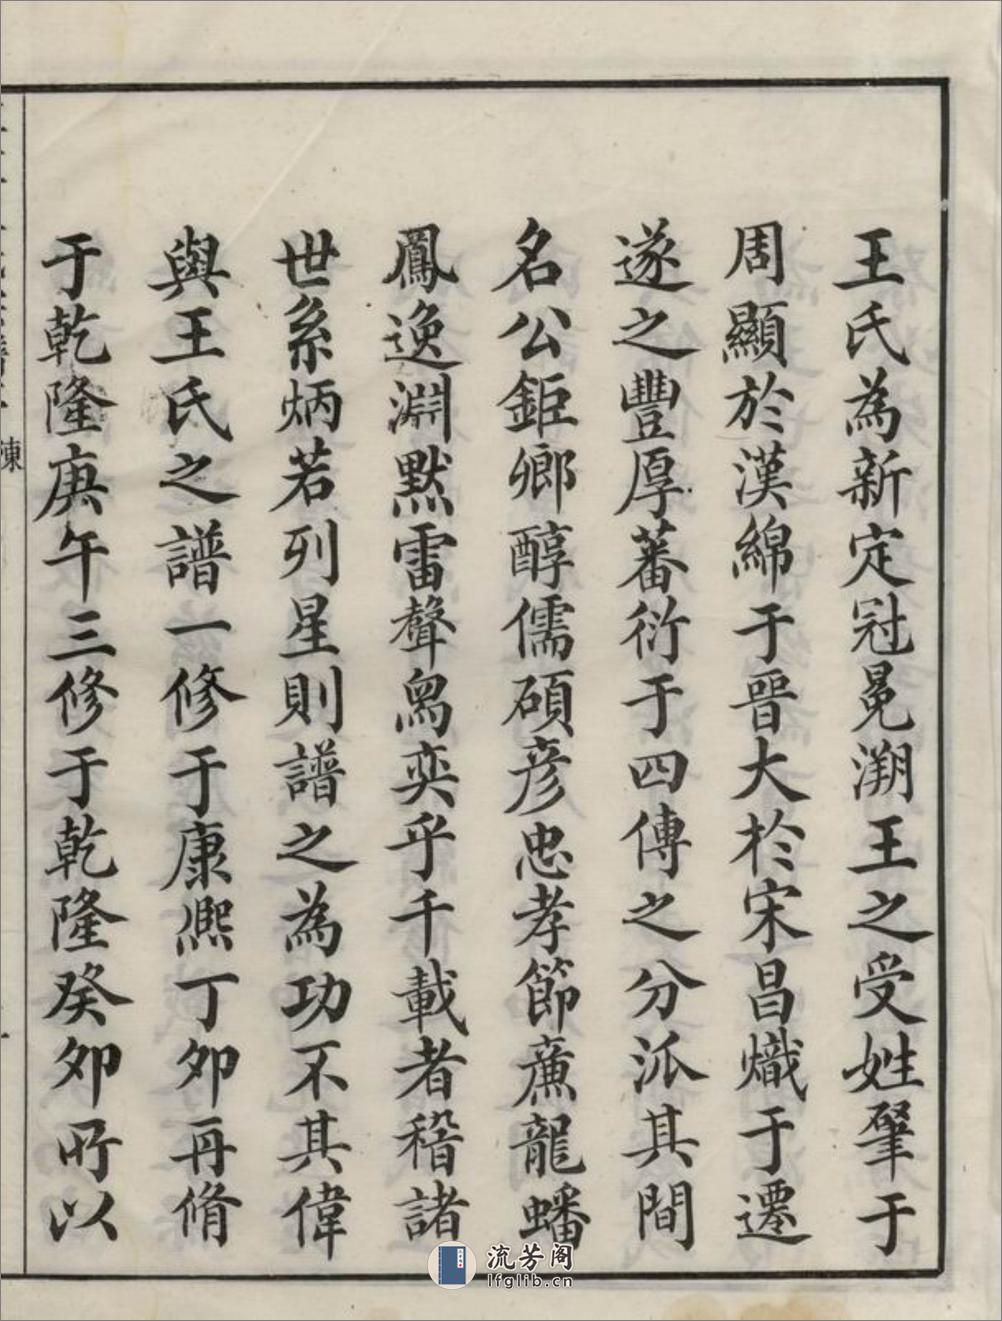 王氏為新定冠冕溯王之受姓肇于
周顯於漢綿于晉大於宋昌熾于遷
遂之豐厚蕃衍于四傳之分派其間
名公鉅卿醇儒碩彥忠孝節廉龍蟠
鳳逸淵默雷聲舄奕乎千載者稽諸
世系炳若列星則譜之為功不其偉
與王氏之譜一修于康熙丁夘再脩
于乾隆庚午三修于乾隆癸夘所以
流芳阁
lfglib.cn